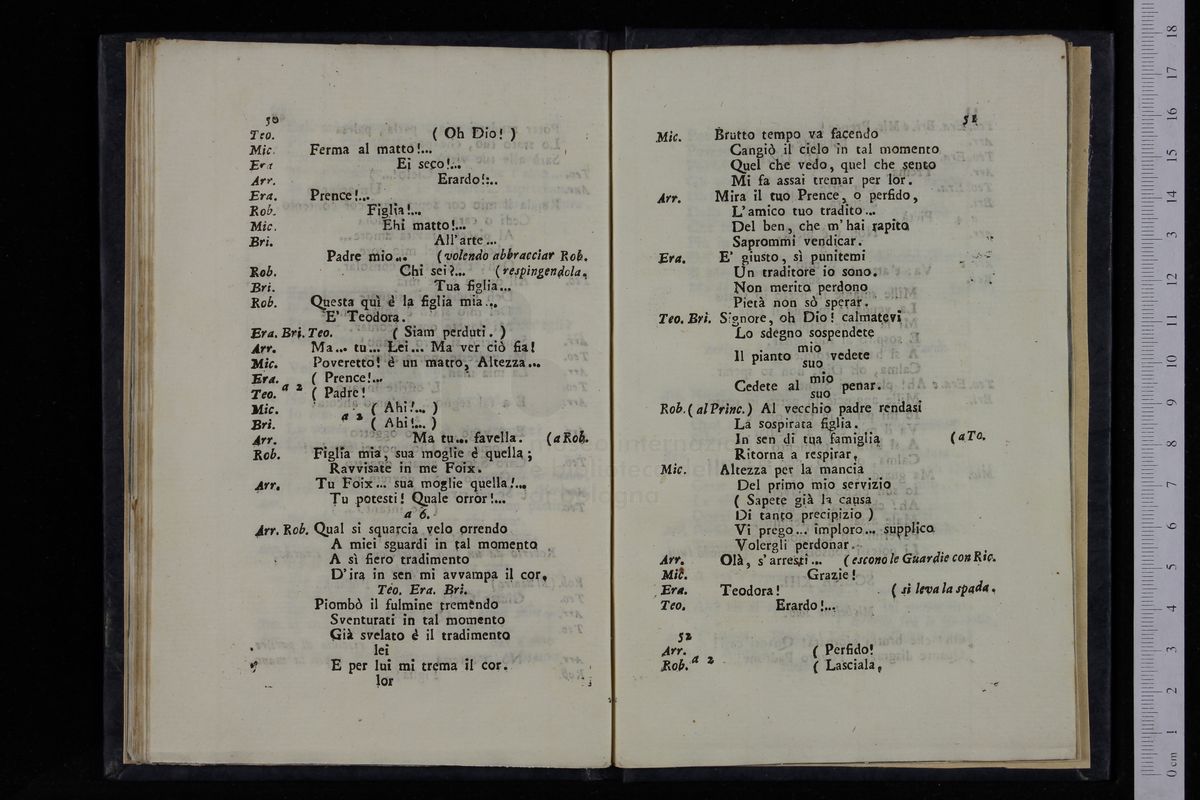 50
Teo. ( Oh Dio! )
Mic. Ferma al matto!...
Era Ei seco!...
Arr. Erardo!...
Era. Prence!...
Rob. Figlia!...
Mic. Ehi matto!...
Bri. All'arte...
Padre mio... (volendo abbracciar Rob.
Rob. Chi sei?... (respingendola.
Bri. Tua figlia...
Rob. Questa quì è la figlia mia...
E' Teodora.
Era. Bri. Teo. ( Siam perduti. )
Arr. Ma... tu... Lei... Ma ver ciò fia!
Mic. Poveretto! è un matto, Altezza...
Era. ( Prence!...
Teo. a 2 ( Padre!
Mic. ( Ahi!... )
Bri. a 2 ( Ahi!... )
Arr. Ma tu... favella. (a Rob.
Rob. Figlia mia, sua moglie è quella;
Ravvisate in me Foix.
Arr. Tu Foix... sua moglie quella!...
Tu potesti! Quale orror!...
a 6.
Arr. Rob. Qual si squarcia velo orrendo
A miei sguardi in tal momento
A sì fiero tradimento
D'ira in sen mi avvampa il cor.
Teo. Era. Bri.
Piombò il fulmine tremendo
Sventurati in tal momento
Già svelato è il tradimento
lei
E per lui mi trema il cor.
lor
51
Mic. Brutto tempo va facendo
Cangiò il cielo in tal momento
Quel che vedo, quel che sento
Mi fa assai tremar per lor.
Arr. Mira il tuo Prence, o perfido,
L'amico tuo tradito...
Del ben, che m'hai rapito
Saprommi vendicar.
Era. E' giusto, sì punitemi
Un traditore io sono.
Non merito perdono
Pietà non sò sperar.
Teo. Bri. Signore, oh Dio! calmatevi
Lo sdegno sospendete
mio
Il pianto vedete
suo
mio
Cedete al penar.
suo
Rob. (al Princ.) Al vecchio padre rendasi
La sospirata figlia.
In sen di tua famiglia (a To.
Ritorna a respirar.
Mic. Altezza per la mancia
Del primo mio servizio
( Sapete già la causa
Di tanto precipizio )
Vi prego... imploro... supplico
Volergli perdonar.
Arr. Olà, s'arresti... (escono le Guardie con Ric.
Mic. Grazie!
Era. Teodora! ( si leva la spada.
Teo. Erardo!...
52
Arr. ( Perfido!
Rob. a 2 ( Lasciala,